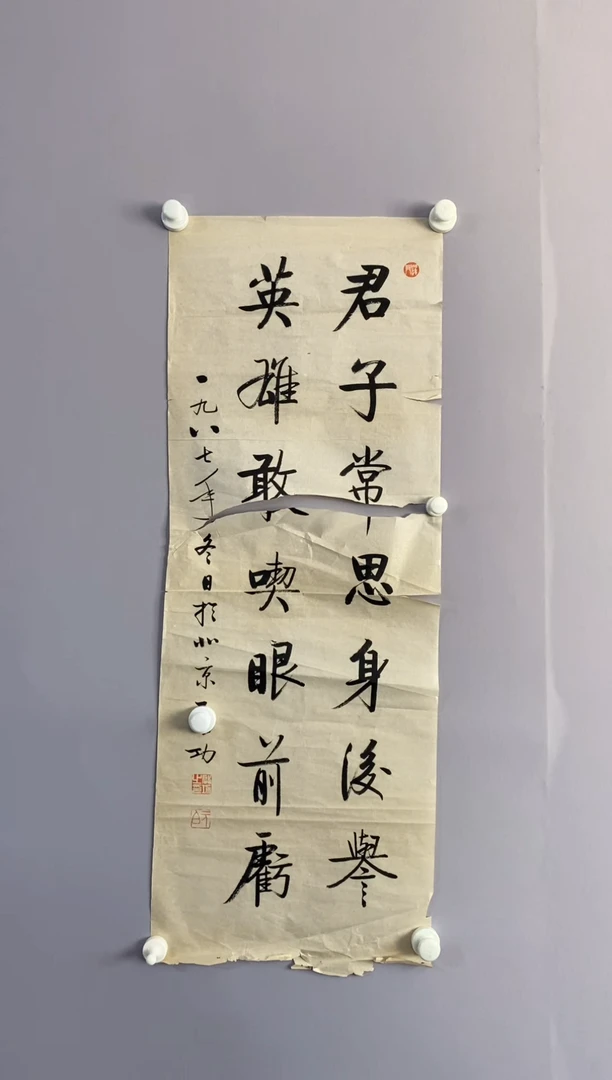 君子常思身後譽
英雄敢喫眼前虧
一九八七年冬日於北京功